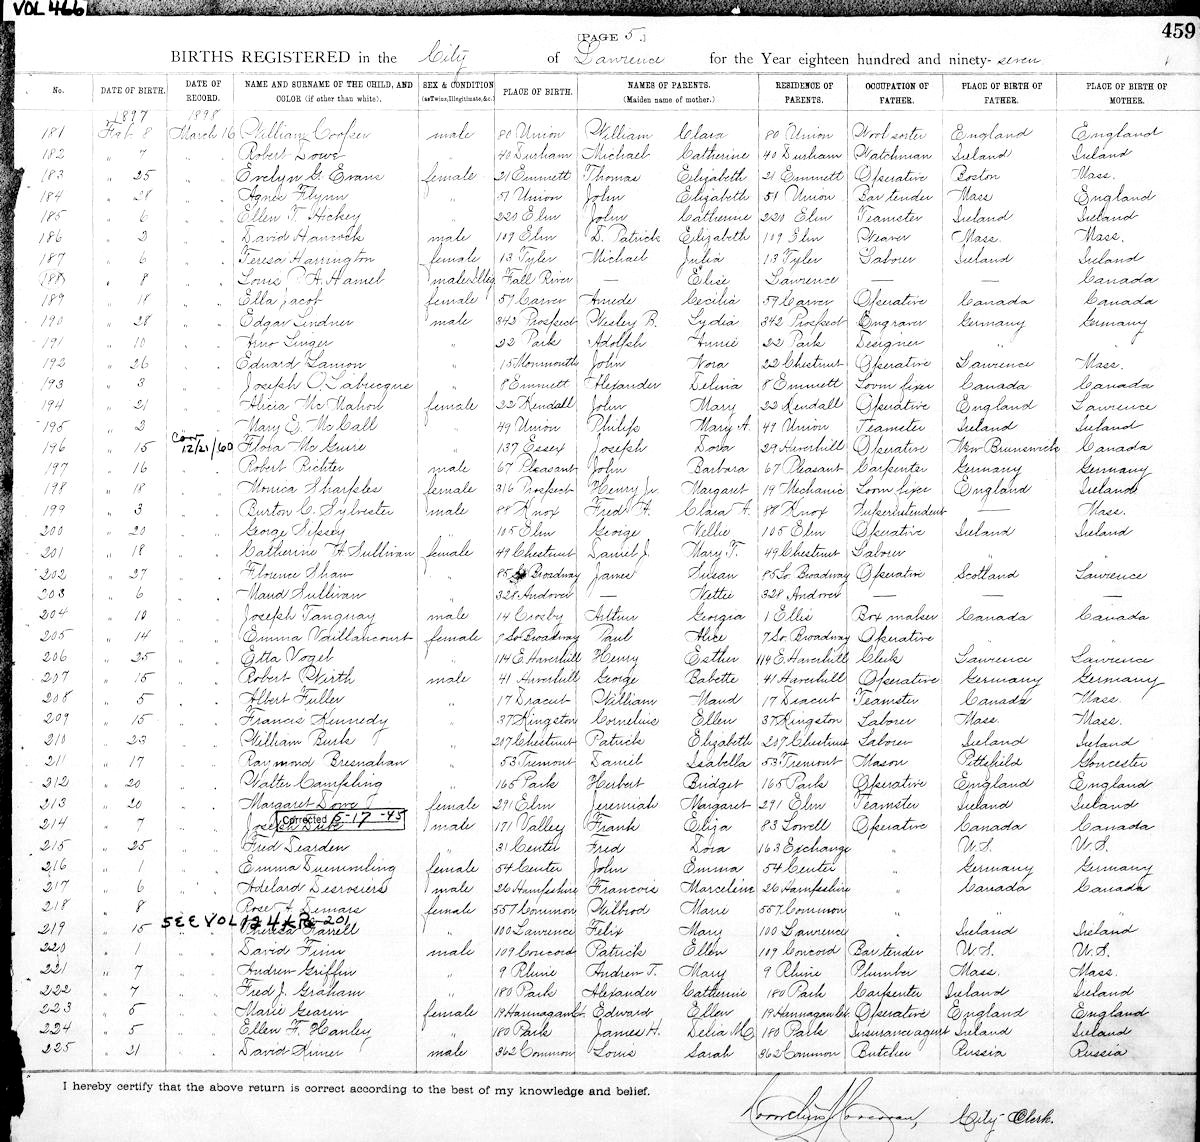 VOL 466
459
[PAGE 5.]
BIRTHS REGISTERED in the City of Lawrence for the Year eighteen hundred and ninety-seven
No. DATE OF BIRTH. DATE OF RECORD. NAME AND SURNAME OF THE CHILD, AND COLOR (if other than white). SEX & CONDITION (as Twins, Illegitimate, &c.) PLACE OF BIRTH. NAMES OF PARENTS. (Maiden name of mother.) RESIDENCE OF PARENTS. OCCUPATION OF FATHER. PLACE OF BIRTH OF FATHER. PLACE OF BIRTH OF MOTHER.
1897 1898
181 Feb 8 March 16 William Cooper male 80 Union William Clara 80 Union Wool sorter England England
182 " 7 " " Robert Dowe " 40 Durham Michael Catherine 40 Durham Watchman Ireland Ireland
183 " 25 " " Evelyn G. Evans female 21 Emmett Thomas Elizabeth 21 Emmett Operative Boston Mass.
184 " 28 " " Agnes Flynn " 51 Union John Elizabeth 51 Union Bar tender Mass England
185 " 6 " " Ellen F. Hickey " 220 Elm John Catherine 220 Elm Teamster Ireland Ireland
186 " 2 " " David Hancock male 109 Elm D. Patrick Elizabeth 109 Elm Weaver Mass. Mass.
187 " 6 " " Teresa Harrington female 13 Tyler Michael Julia 13 Tyler Laborer Ireland Ireland
188 " 8 " " Louis P. A. Hamel male Illeg Fall River — Elise Lawrence — — Canada
189 " 18 " " Ella Jacob female 57 Carver Amede Cecilia 59 Carver Operative Canada Canada
190 " 28 " " Edgar Lindner male 342 Prospect Wesley B. Lydia 342 Prospect Engraver Germany Germany
191 " 10 " " Arno Linger " 22 Park Adolph Annie 22 Park Designer " "
192 " 26 " " Edward Lamon " 15 Monmouth John Nora 22 Chestnut Operative Lawrence Mass.
193 " 3 " " Joseph O. Labrecque " 8 Emmett Alexander Delina 8 Emmett Loom fixer Canada Canada
194 " 21 " " Alicia McMahon female 22 Kendall John Mary 22 Kendall Operative England Lawrence
195 " 2 " " Mary E. McCall " 49 Union Philip Mary A. 49 Union Teamster Ireland Ireland
196 " 15 Corr 12/21/60 Flora McGuire " 137 Essex Joseph Dora 29 Haverhill Operative New Brunswick Canada
197 " 16 " " Robert Richter male 67 Pleasant John Barbara 67 Pleasant Carpenter Germany Germany
198 " 18 " " Monica Sharples female 316 Prospect Henry Jr. Margaret 19 Mechanic Loom fixer England Ireland
199 " 3 " " Burton C. Sylvester male 88 Knox Fred A. Clara A. 88 Knox Superintendent — Mass.
200 " 20 " " George Sipsey " 105 Elm George Nellie 105 Elm Operative Ireland Ireland
201 " 18 " " Catherine A Sullivan female 49 Chestnut Daniel J. Mary T. 49 Chestnut Laborer " "
202 " 27 " " Florence Shaw " 85 So Broadway James Susan 85 So Broadway Operative Scotland Lawrence
203 " 6 " " Maud Sullivan " 328 Andover — Nettie 328 Andover — — —
204 " 10 " " Joseph Tanguay male 14 Crosby Arthur Georgia 1 Ellis Box maker Canada Canada
205 " 14 " " Emma Vaillancourt female 7 So Broadway Paul Alice 7 So. Broadway Operative " "
206 " 25 " " Etta Vogel " 114 E. Haverhill Henry Esther 119 E. Haverhill Clerk Lawrence Lawrence
207 " 15 " " Robert Wirth male 41 Haverhill George Babette 41 Haverhill Operative Germany Germany
208 " 5 " " Albert Fuller " 17 Dracut William Maud 17 Dracut Teamster Canada Mass.
209 " 15 " " Francis Kennedy " 37 Kingston Cornelius Ellen 37 Kingston Laborer Mass. Mass.
210 " 23 " " William Burk " 207 Chestnut Patrick Elizabeth 207 Chestnut Laborer Ireland Ireland
211 " 17 " " Raymond Bresnahan " 53 Tremont Daniel Isabella 53 Tremont Mason Pittsfield Gloucester
212 " 20 " " Walter " 165 Park Herbert Bridget 165 Park Operative England England
213 " 20 " " Margaret Dowe female 291 Elm Jeremiah Margaret 291 Elm Teamster Ireland Ireland
214 " 7 " " Joseph Dube Corrected 5-17-45 male 171 Valley Frank Eliza 83 Lowell Operative Canada Canada
215 " 25 " " Fred Dearden " 31 Center Fred Dora 163 Exchange " U.S. U.S.
216 " 1 " " Emma Dummling female 54 Center John Emma 54 Center " Germany Germany
217 " 6 " " Adelard Desrosiers male 26 Hampshire Francois Marceline 26 Hampshire " Canada Canada
218 " 8 " " Rose A. Demars female 557 Common Wilbrod Marie 557 Common " " "
SEE VOL 124 K Pg 201
219 " 15 " " Theresa Farrell " 100 Lawrence Felix Mary 100 Lawrence " Ireland Ireland
220 " 1 " " David Finn male 109 Concord Patrick Ellen 109 Concord Bar tender U.S. U.S.
221 " 7 " " Andrew Griffin " 9 Rhine Andrew T. Mary 9 Rhine Plumber Mass. Mass.
222 " 7 " " Fred J. Graham " 180 Park Alexander Catherine 180 Park Carpenter Ireland Ireland
223 " 5 " " Marie Gearin female 19 Hannagan Ct. Edward Ellen 19 Hannagan Ct. Operative England England
224 " 5 " " Ellen F. Hanley " 180 Park James H. Delia McC 180 Park Insurance agent Ireland Ireland
225 " 21 " " David Kiner male 362 Common Louis Sarah 362 Common Butcher Russia Russia
I hereby certify that the above return is correct according to the best of my knowledge and belief.
City Clerk.